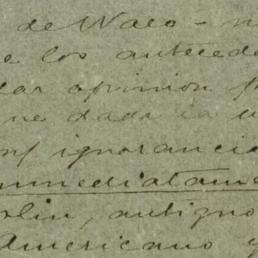 de Waco - n
e los anteced
dar opinion p
ue dada la u
mi ignorancia
nmediatame
olin, antiguo
Americano y